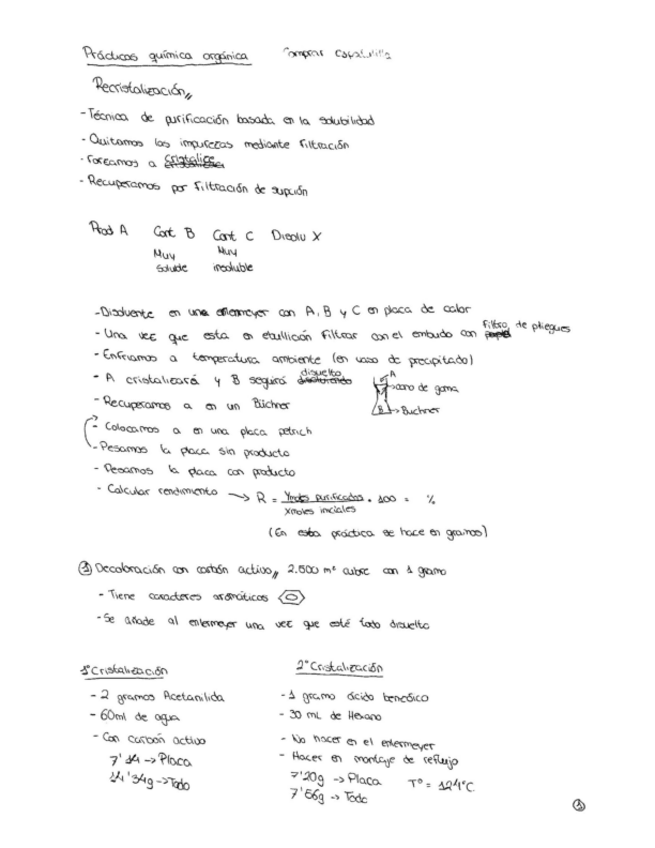 Prácticas química orgánica Comprar espátula
Recristalización,,
- Técnica de purificación basada en la solubilidad
- Quitamos las impurezas mediante filtración
- Forzamos a cristalice
- Recuperamos por filtración de supción
Prod A Cont B Cont C Disolu X
Muy Muy
soluble insoluble
- Disolvente en una erlenmeyer con A, B y C en placa de calor
- Una vez que esta en ebullición filtrar con el embudo con filtro de pliegues
- Enfriamos a temperatura ambiente (en vaso de precipitado)
- A cristalizará y B seguirá disuelto
- Recuperamos a en un Büchner
A
cono de goma
B Buchner
- Colocamos a en una placa petrich
- Pesamos la placa sin producto
- Pesamos la placa con producto
- Calcular rendimiento → R = Ymoles purificados / Xmoles iniciales · 100 = %
(En esta práctica se hace en gramos)
① Decoloración con carbón activo,, 2.500 m² cubre con 1 gramo
- Tiene caracteres aromáticos
- Se añade al enlermeyer una vez que esté todo disuelto
1ª Cristalización
- 2 gramos Acetanilida
- 60ml de agua
- Con carbón activo
7'14 → Placa
14'34g → Todo
2ª Cristalización
- 1 gramo ácido benzóico
- 30 mL de Hexano
- No hacer en el enlermeyer
- Hacer en montaje de reflujo
7'20g → Placa Tº = 124ºC
7'56g → Todo
①